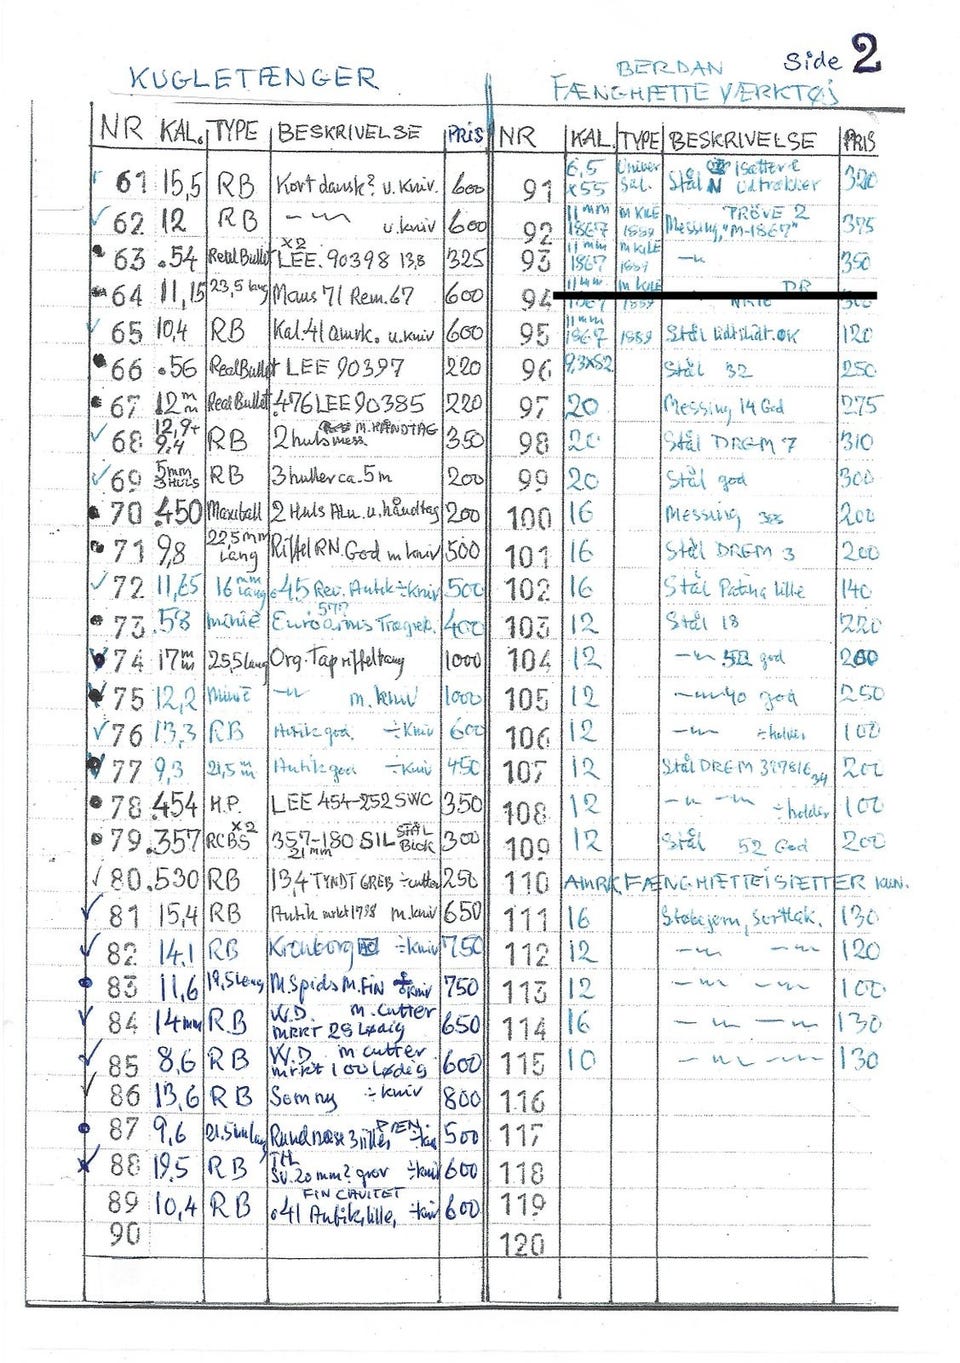 Side 2
KUGLETÆNGER
BERDAN
FÆNGHÆTTE VÆRKTØJ
NR KAL. TYPE BESKRIVELSE PRIS
61 15,5 RB Kort dansk? u. Kniv. 600
62 12 RB -"- u.kniv 600
63 .54 Real Bullet X2 LEE. 90398 13,8 325
64 11,15 23,5 lang Maus 71 Rem. 67 600
65 10,4 RB Kal. 41 Amrk. u.kniv 600
66 .56 Real Bullet LEE 90397 220
67 12mm Real Bullet .476 LEE 90385 220
68 12,9+ 9,4 RB 2 huls mess. M. HÅNDTAG 350
69 5mm 3 HULS RB 3 huller ca. 5 m 200
70 .450 Maxiball 2 Huls Alu. u. håndtag 200
71 9,8 22,5 mm Lang Riffel RN. God m kniv 500
72 11,65 16 mm lang .45 Rev. Antik ÷kniv 500
73 .58 minié Euroarms 577 Trægreb. 400
74 17mm 25,5 lang Org. Tapriffeltang 1000
75 12,2 Minié -"- m. kniv 1000
76 13,3 RB Antik god. ÷Kniv 600
77 9,3 21,5 m Antik god ÷kniv 450
78 .454 H.P. LEE 454-252 SWC 350
79 .357 RCBS X2 357-180 SIL STÅL Blok 21mm 300
80 .530 RB 13,4 TYNDT GREB ÷cutter 250
81 15,4 RB Antik mrkt 1798 m.kniv 650
82 14,1 RB Kronborg ÷kniv 750
83 11,6 19,5 lang M. Spids M. FIN ÷kniv 750
84 14mm R.B W.D. m. cutter MRKT 28 Lødig 650
85 8,6 RB W.D. m cutter mrkt 100 Lødig 600
86 13,6 RB Som ny ÷kniv 800
87 9,6 21,5 mm lang Rundnæse 3 riller 500
88 19,5 RB Sv. 20 mm? grov ÷kniv 600
89 10,4 RB FIN CAVITET .41 Antik, lille, ÷kniv 600
90
NR KAL. TYPE BESKRIVELSE PRIS
91 6,5 x55 Univer Sal. Stål isætter & Udtrækker 320
92 11 mm 1867 m KILE 1889 Messing, "M-1867" PRÖVE 2 375
93 11 mm 1867 m KILE 1889 -"- 350
94 11 mm 1867 m KILE 1889 300
95 11 mm 1867 1889 Stål lidt slidt. OK 120
96 9,3x52 Stål 32 250
97 20 Messing 14 God 275
98 20 Stål DREM 7 310
99 20 Stål god 300
100 16 Messing 200
101 16 Stål DREM 3 200
102 16 Stål Patina lille 140
103 12 Stål 18 220
104 12 -"- god
105 12 -"- 40 god 250
106 12 -"- 100
107 12 Stål DREM 387816 34 200
108 12 -"- -"- ÷holder 100
109 12 Stål 52 God 200
110 AMRK FÆNGHÆTTEISÆTTER KUN.
111 16 Støbejern, Sortlak. 130
112 12 -"- -"- 120
113 12 -"- -"- 100
114 16 -"- -"- 130
115 10 -"- -"- 130
116
117
118
119
120